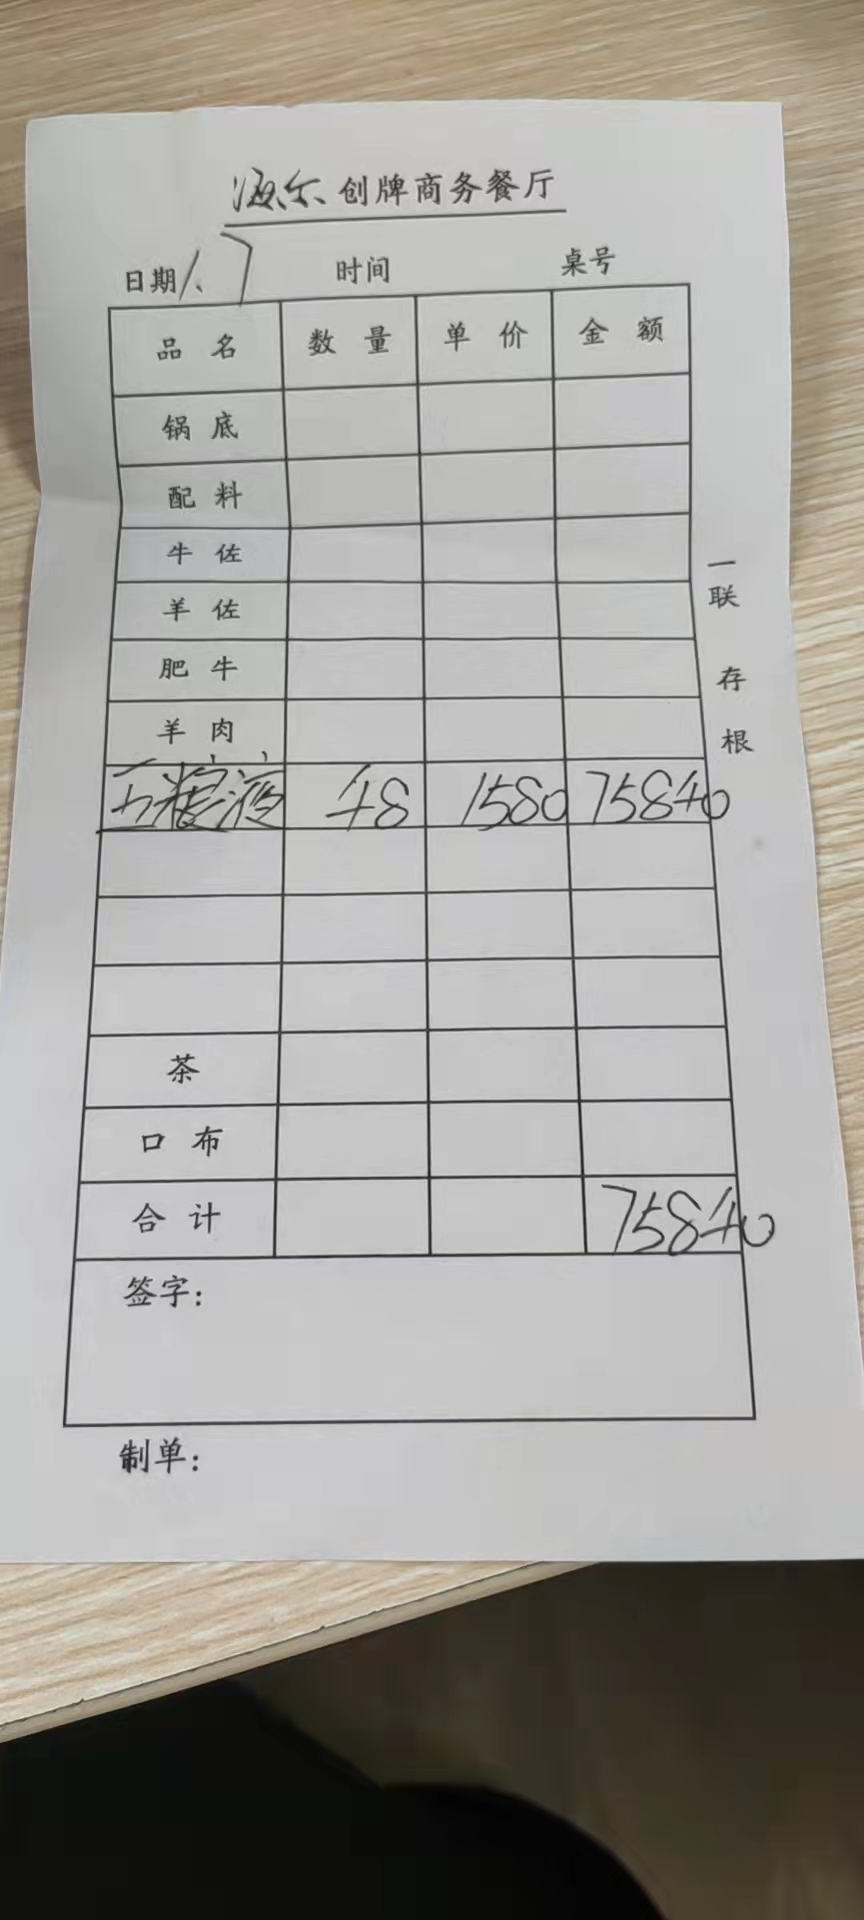 海尔创牌商务餐厅
日期 1.7 时间 桌号
品名 数量 单价 金额
锅底
配料
牛佐
羊佐
肥牛
羊肉
五粮液 48 1580 75840
茶
口布
合计 75840
签字：
制单：
一联存根